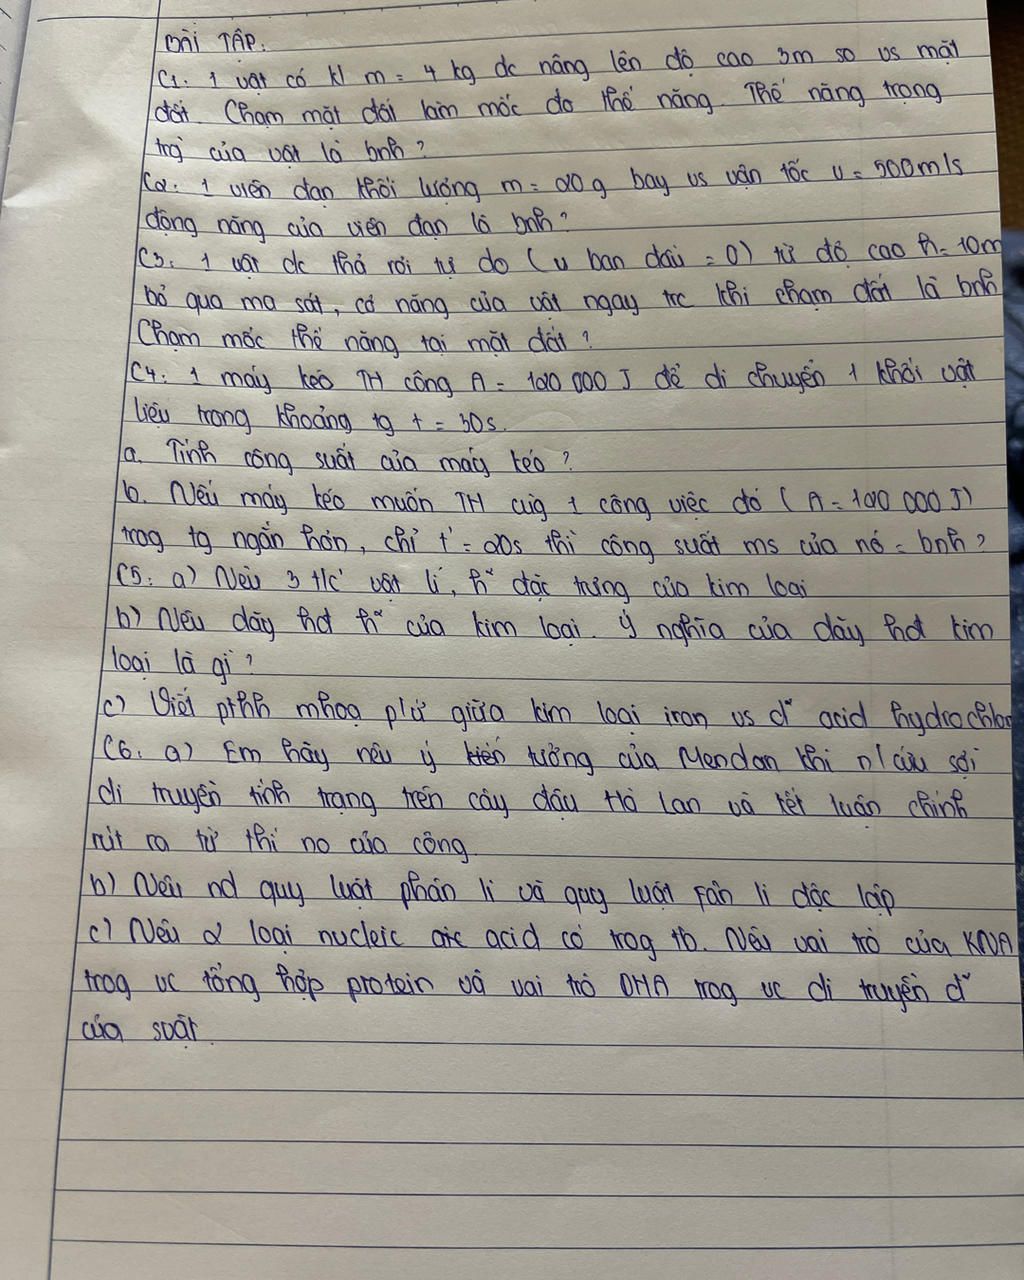 BÀI TẬP.
C1. 1 vật có kl m = 4 kg dc nâng lên độ cao 3m so vs mặt
đất. Chạm mặt đất làm mốc do thế năng. Thế năng trọng
trg của vật là bnh?
C2. 1 viên đạn khối lượng m = 20 g bay vs vận tốc v = 500m/s
động năng của viên đạn là bnh?
C3. 1 vật dc thả rơi tự do (v ban dâù = 0) từ độ cao h = 10m
bỏ qua ma sát, cơ năng của vật ngay trc khi chạm đất là bnh
Chạm mốc thế năng tại mặt đất?
C4. 1 máy kéo TH công A = 120 000 J để di chuyển 1 khối vật
liệu trong khoảng tg t = 30s.
a. Tính công suất của máy kéo?
b. Nếu máy kéo muốn TH cùg 1 công việc đó (A = 120 000 J)
trog tg ngắn hơn, chỉ t' = 20s thì công suất ms của nó = bnh?
C5: a) Nêu 3 t/c' vật lí, h² đặc trưng của kim loại
b) Nêu dãy hđ h² của kim loại. Ý nghĩa của dãy hđ kim
loại là gì?
c) Viết pthh mhoạ p/ứ giữa kim loại iron vs d² acid hydrochlo
C6: a) Em hãy nêu ý tưởng của Menđan khi n/cứu sợi
di truyền tính trạng trên cây đậu Hà Lan và kết luận chính
rút ra từ thí no của công.
b) Nêu nd quy luật phân li và quy luật Fân li độc lập
c) Nêu 2 loại nucleic acid có trog tb. Nêu vai trò của RNA
trog vc tổng hợp protein và vai trò DNA trog vc di truyền d²
của svật.